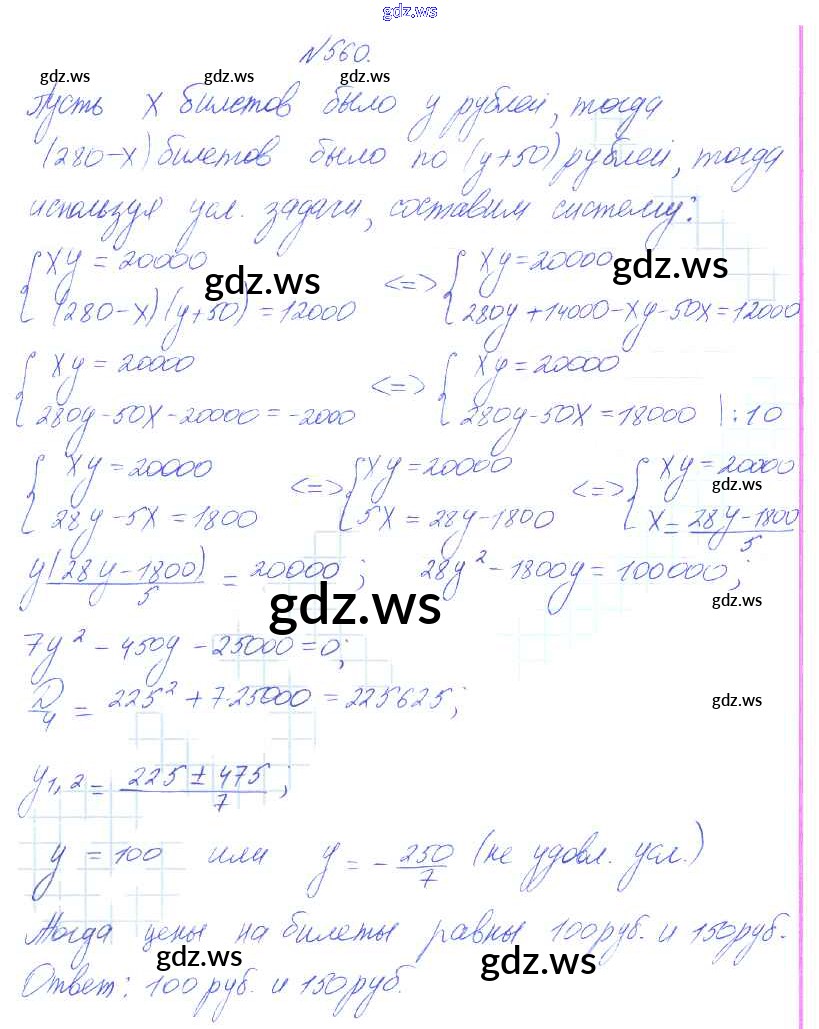 gdz.ws
№560.
gdz.ws gdz.ws gdz.ws
Пусть x билетов было y рублей, тогда
(280-x) билетов было по (y+50) рублей, тогда
используя усл. задачи, составим систему:
{ xy = 20000 <=> { xy = 20000
gdz.ws gdz.ws
(280-x)(y+50) = 12000 280y+14000-xy-50x=12000
{ xy = 20000 <=> { xy = 20000
280y-50x-20000=-2000 280y-50x=18000 |:10
{ xy = 20000 <=> { xy = 20000 <=> { xy = 20000
gdz.ws
28y-5x = 1800 5x = 28y-1800 x = (28y-1800)/5
y(28y-1800)/5 = 20000; 28y² - 1800y = 100000;
gdz.ws gdz.ws
7y² - 450y - 25000 = 0;
D/4 = 225² + 7·25000 = 225625;
gdz.ws
y1,2 = (225 ± 475)/7;
y = 100 или y = -250/7 (не удовл. усл.)
Тогда цены на билеты равны 100руб. и 150руб.
gdz.ws gdz.ws
Ответ: 100руб. и 150руб.